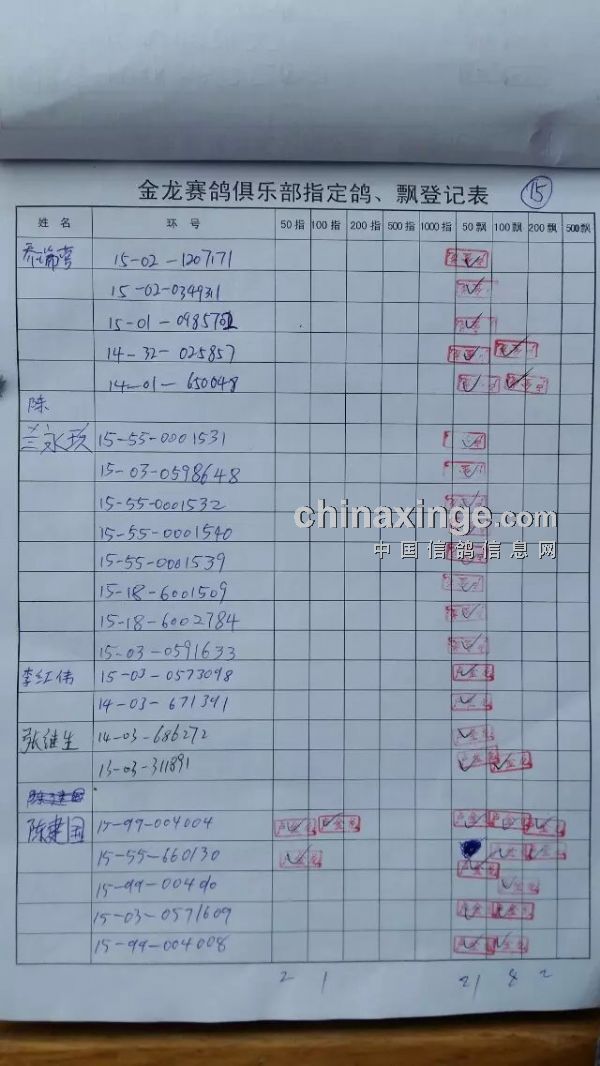 金龙赛鸽俱乐部指定鸽、飘登记表 15
姓名 环号 50指 100指 200指 500指 1000指 50飘 100飘 200飘 500飘
15-02-1207171
15-02-0349311
15-01-
14-32-025857
14-01-650048
陈
兰永玖 15-55-0001531
15-03-0598648
15-55-0001532
15-55-0001540
15-55-0001539
15-18-6001509
15-18-6002784
15-03-0591633
李红伟 15-03-0573098
14-03-671391
张继生 14-03-686272
13-03-311891
陈建国 15-99-004004
15-55-660130
15-99-
15-03-0571609
15-99-004008
2 1 21 8 2
chinaxinge.com
中国信鸽信息网